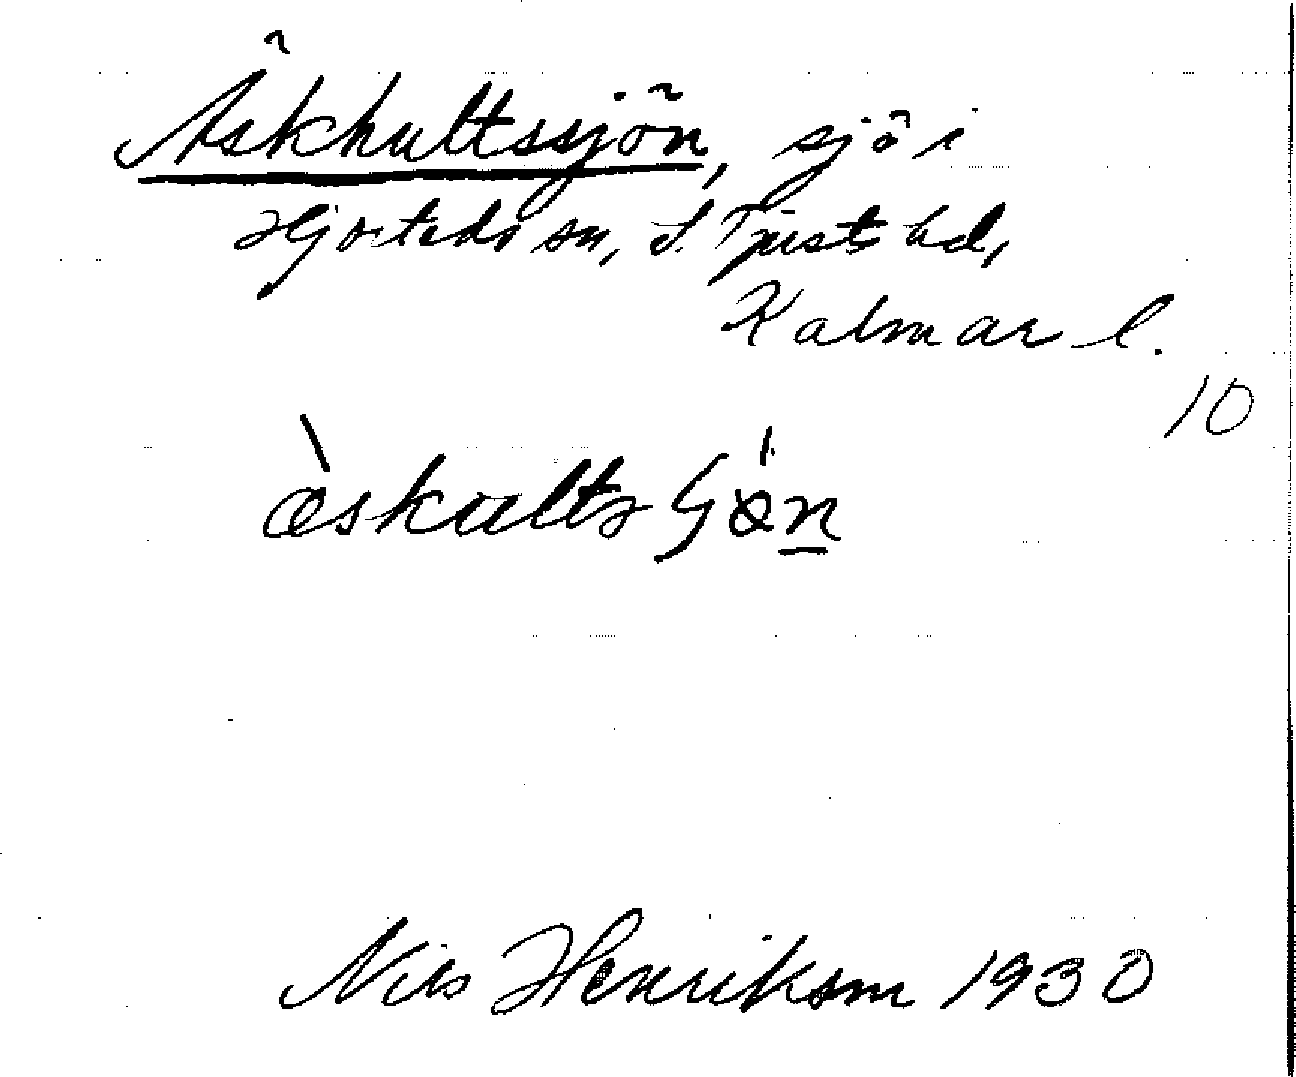 Äskhultssjön, sjö i
Hjorteds sn, S. Tjust hd,
Kalmar l.
10
Nils Henrikson 1930